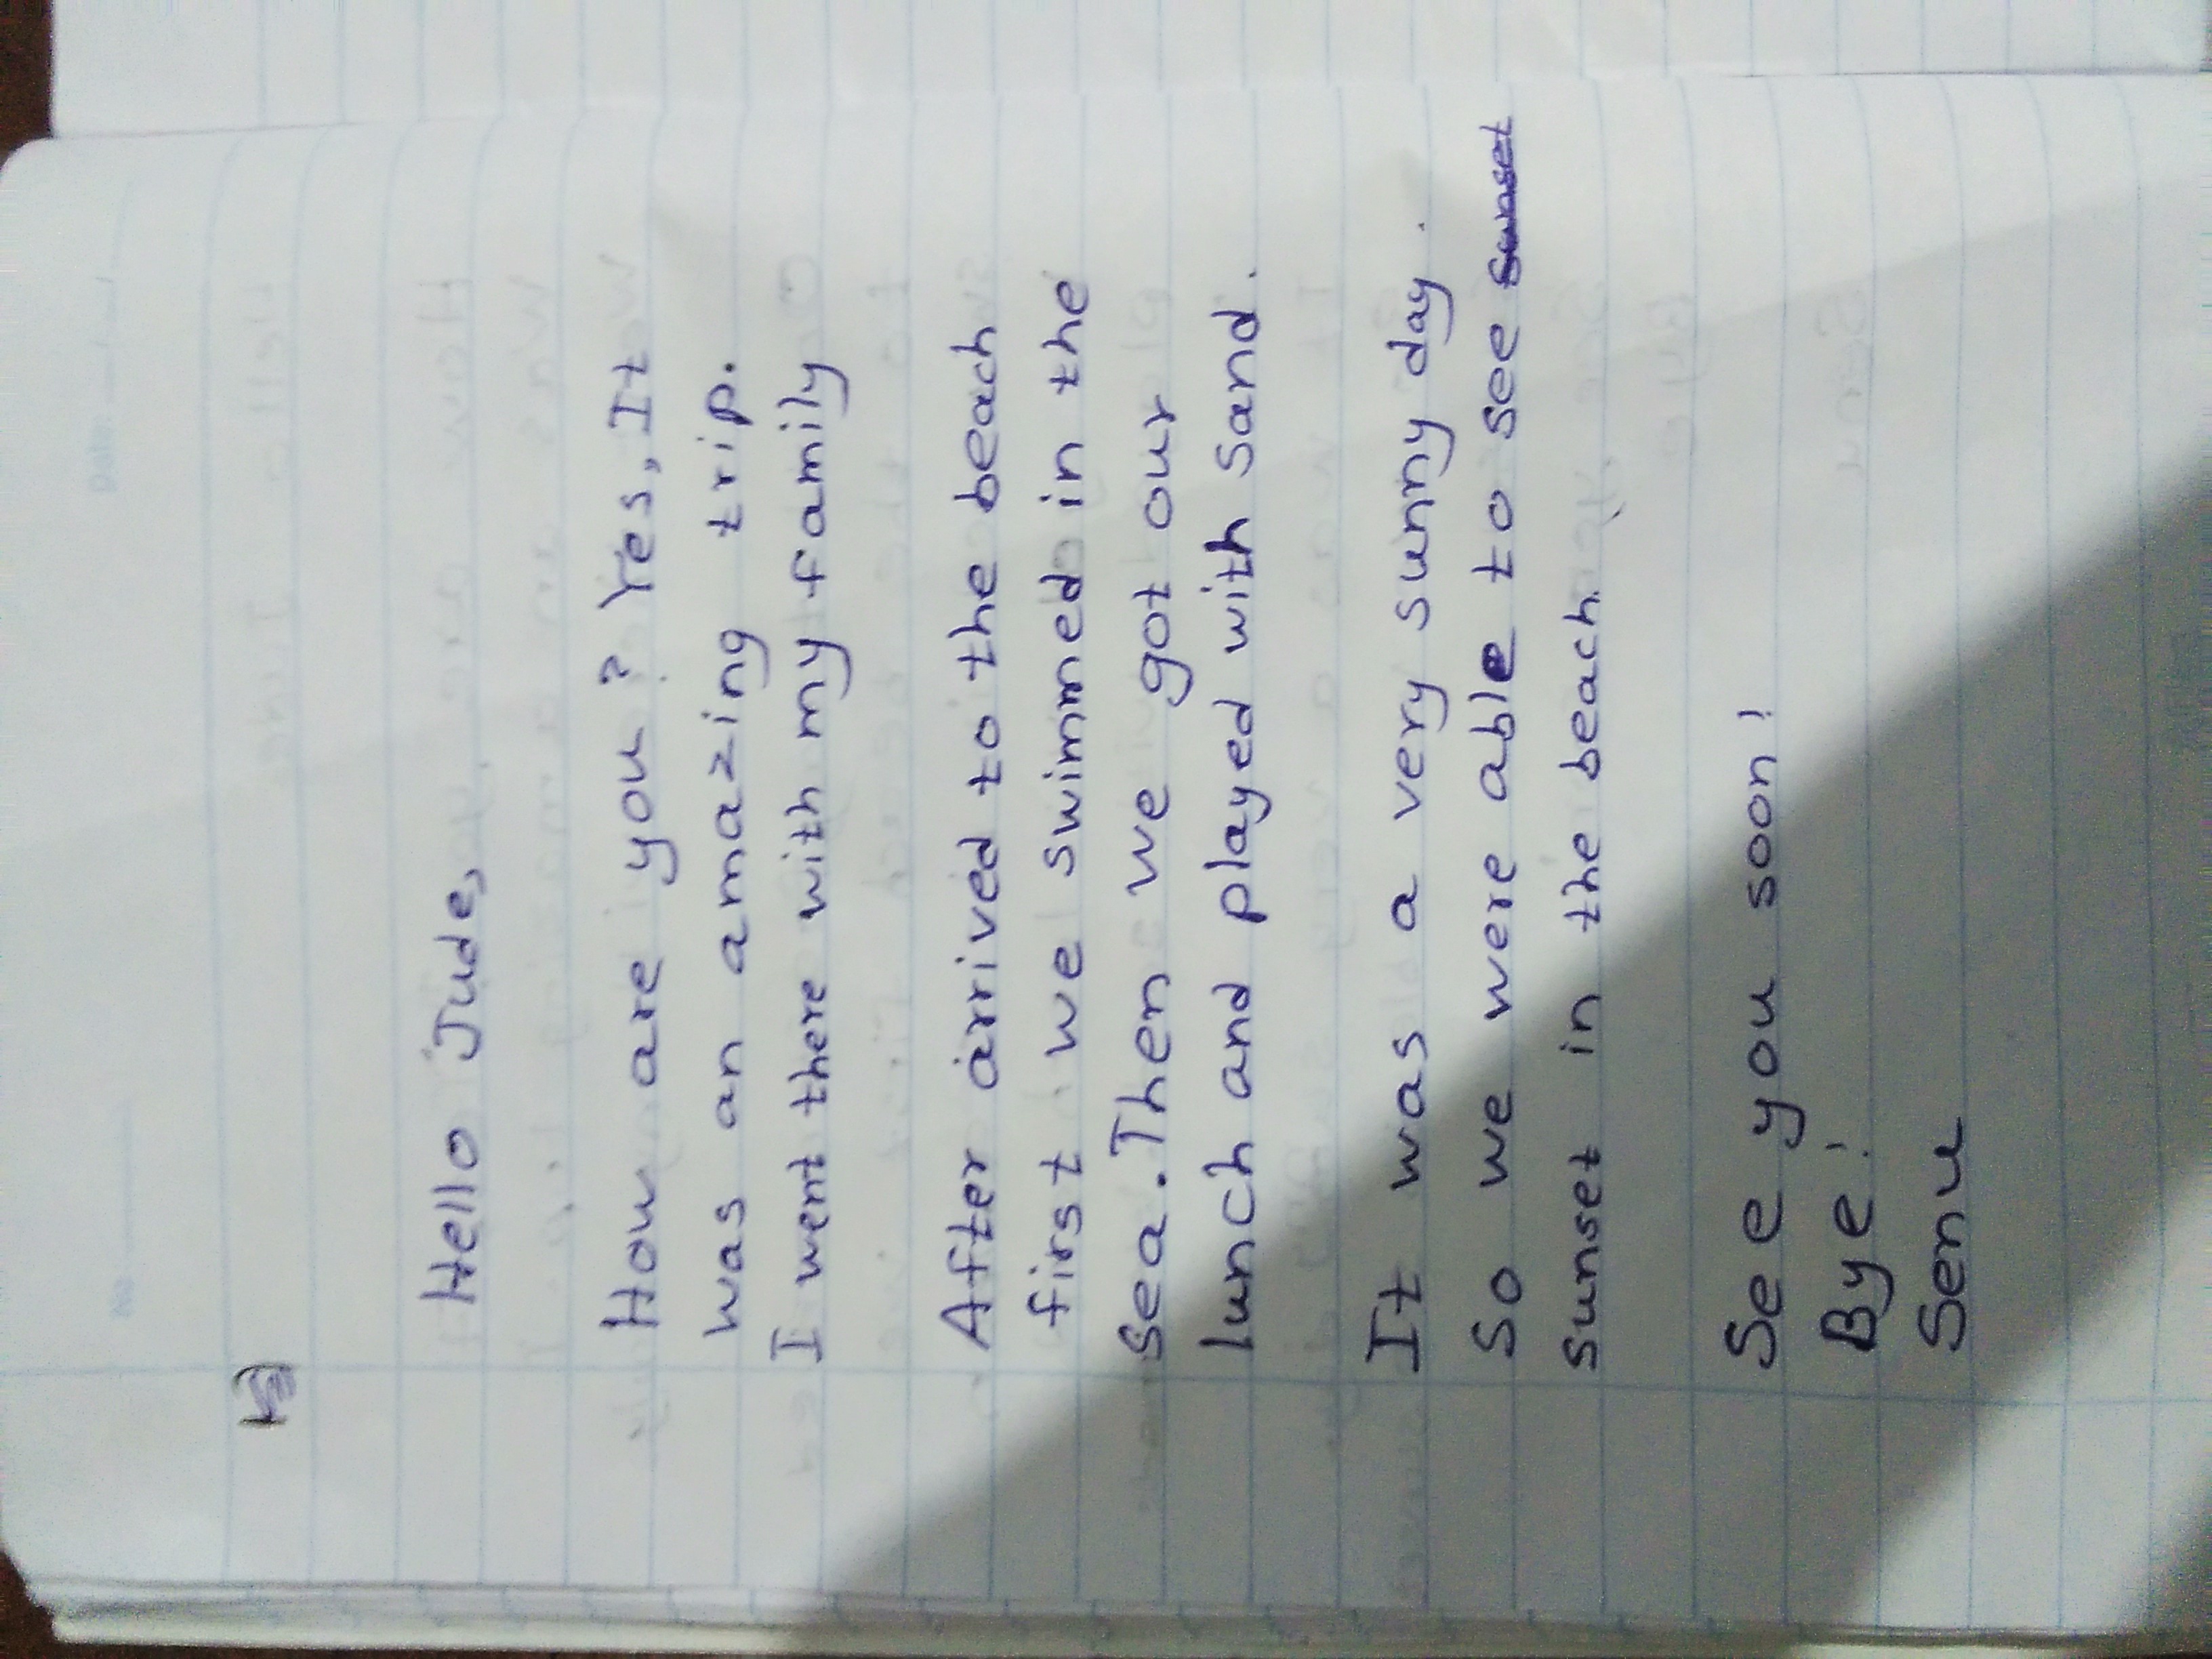 Hello Jude,
How are you? Yes, It
was an amazing trip.
I went there with my family
After arrived to the beach
first we swimmed in the
sea. Then we got our
lunch and played with sand.
It was a very sunny day.
So we were able to see sunset
sunset in the beach.
See you soon!
Bye!
Senu